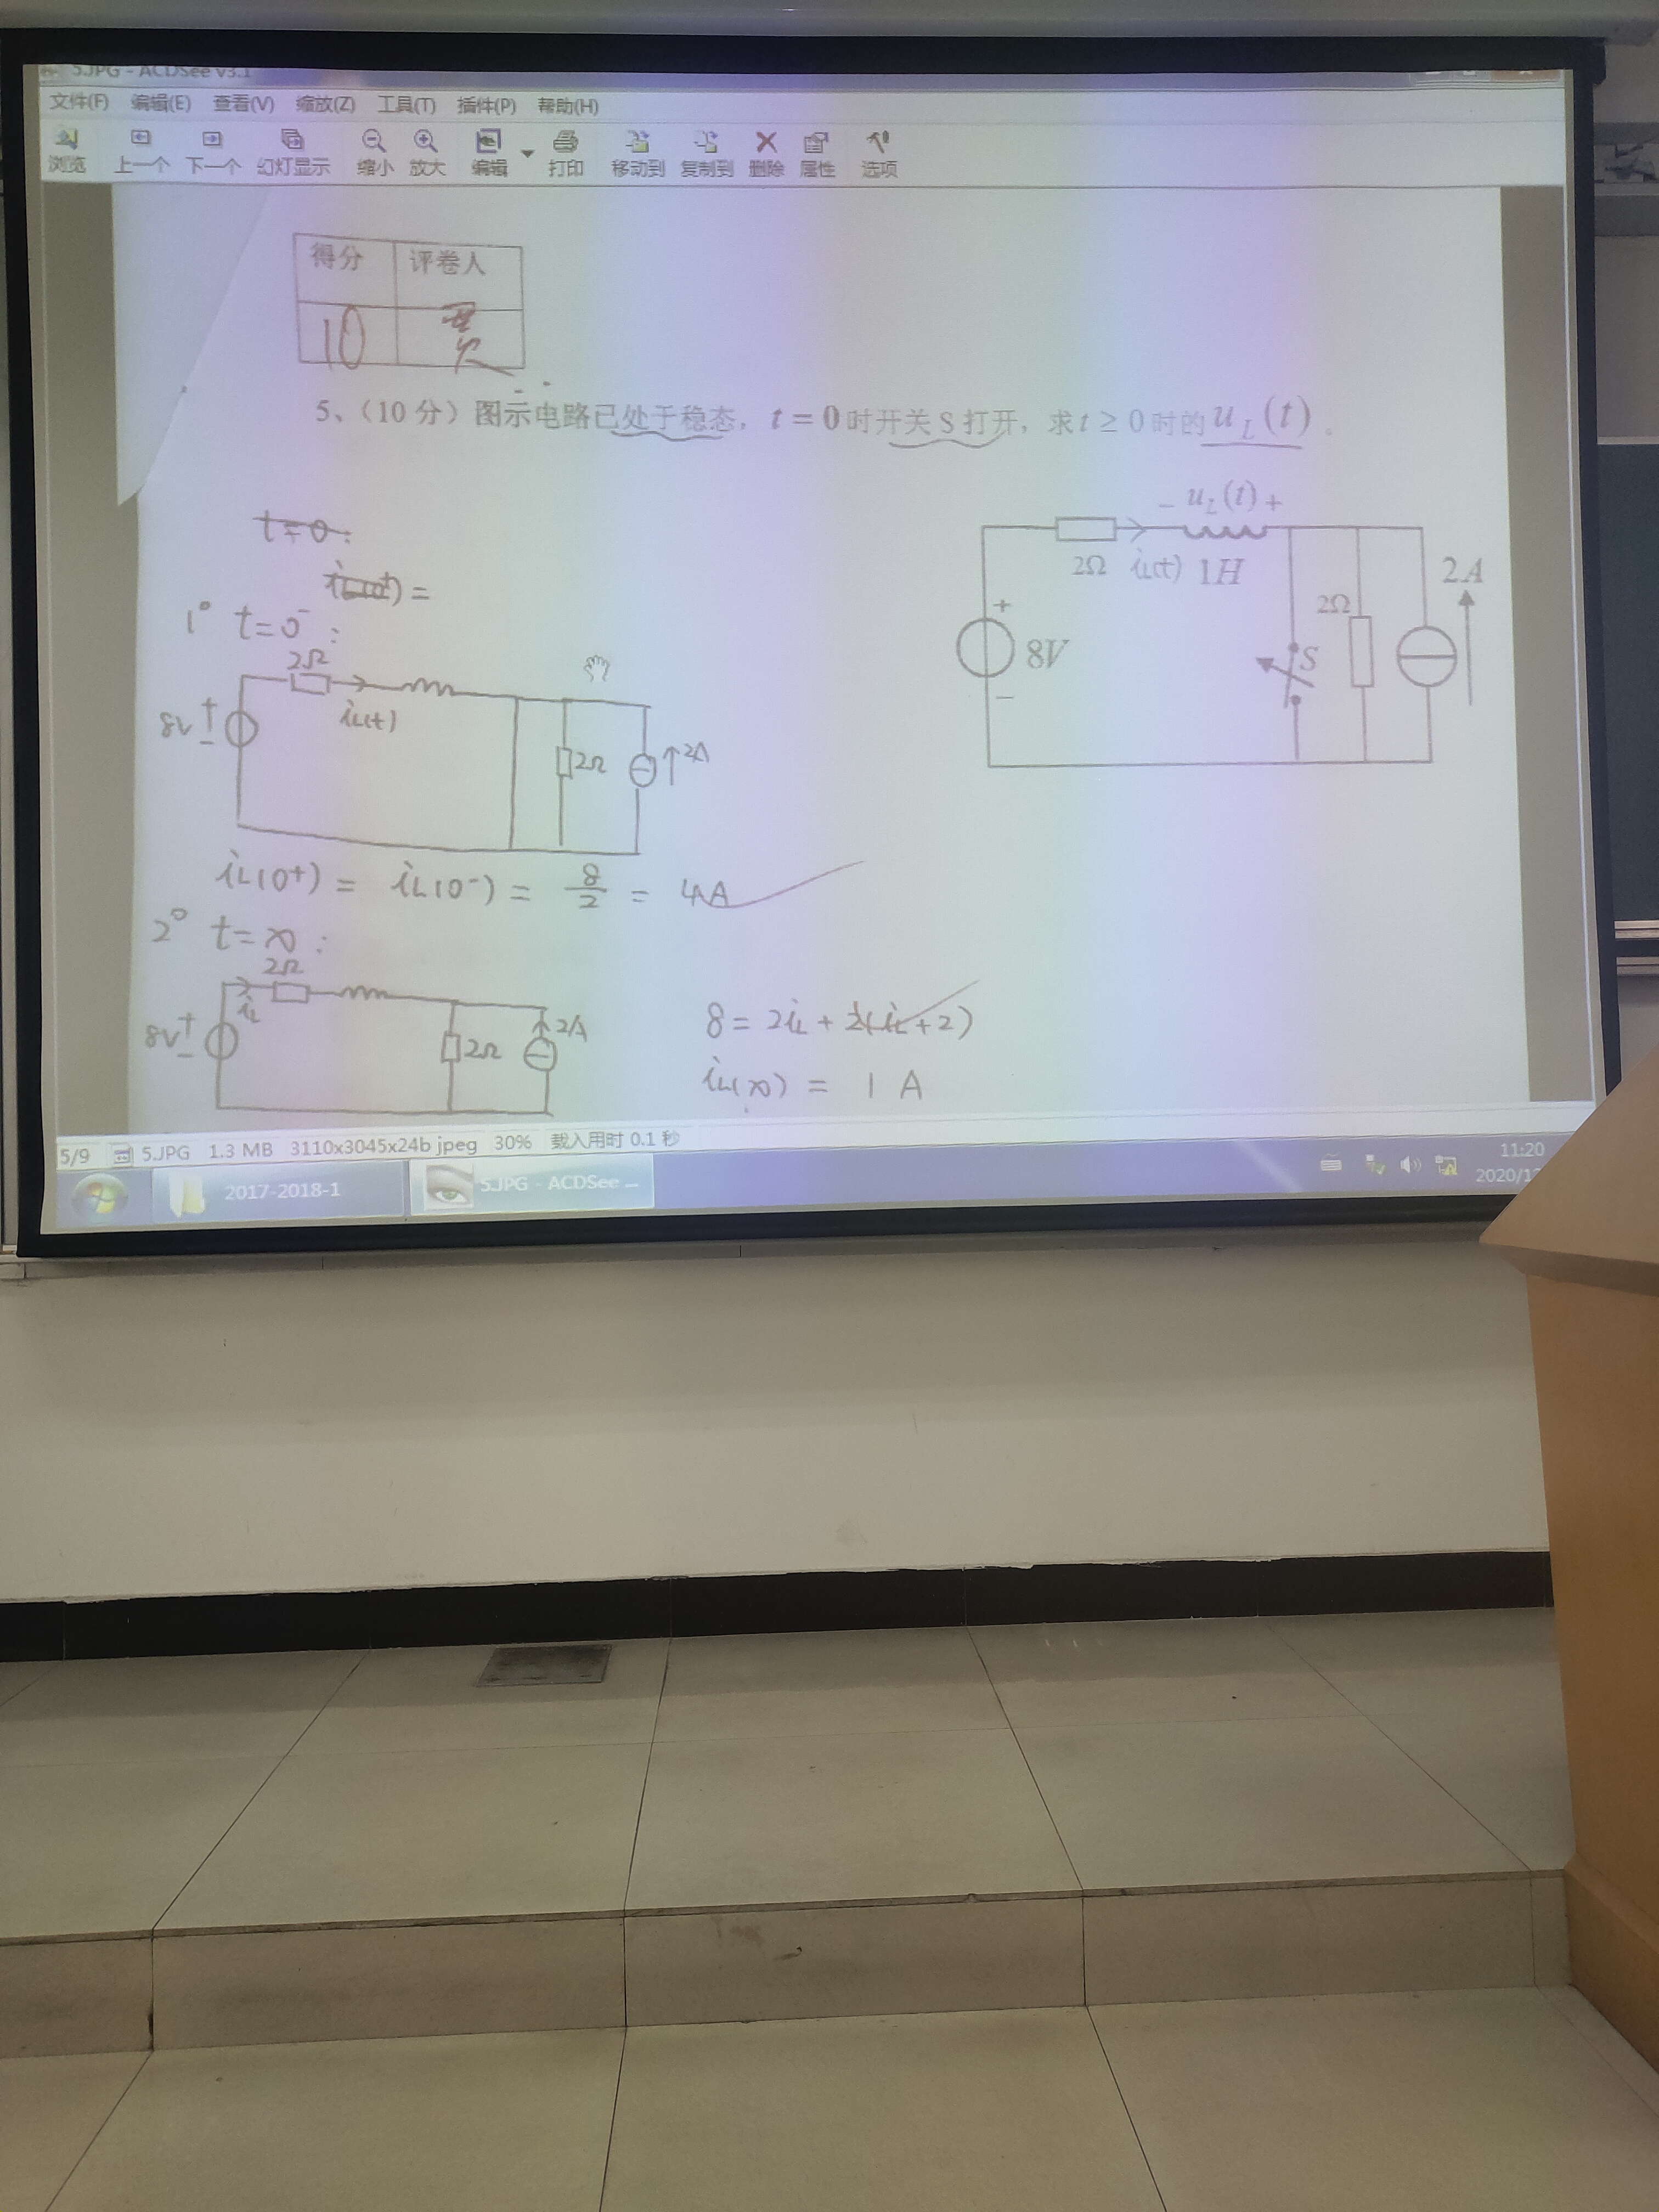 5.JPG - ACDSee v3.1
文件(F) 编辑(E) 查看(V) 缩放(Z) 工具(T) 插件(P) 帮助(H)
浏览 上一个 下一个 幻灯显示 缩小 放大 编辑 打印 移动到 复制到 删除 属性 选项
得分 评卷人
10
5、（10 分）图示电路已处于稳态，t = 0 时开关 S 打开，求 t ≥ 0 时的 u_L(t) 。
- u_L(t) +
2Ω i_L(t) 1H
2A
2Ω
+
8V
S
-
t=0:
1° t=0⁻:
2Ω
8V + -
i_L(t)
2Ω
2A
i_L(0⁺) = i_L(0⁻) = 8/2 = 4A
2° t=∞:
2Ω
i_L
8V + -
2Ω
2A
8 = 2i_L + 2(i_L+2)
i_L(∞) = 1 A
5/9 5.JPG 1.3 MB 3110x3045x24b jpeg 30% 载入用时 0.1 秒
2017-2018-1
5.JPG - ACDSee ...
11:20